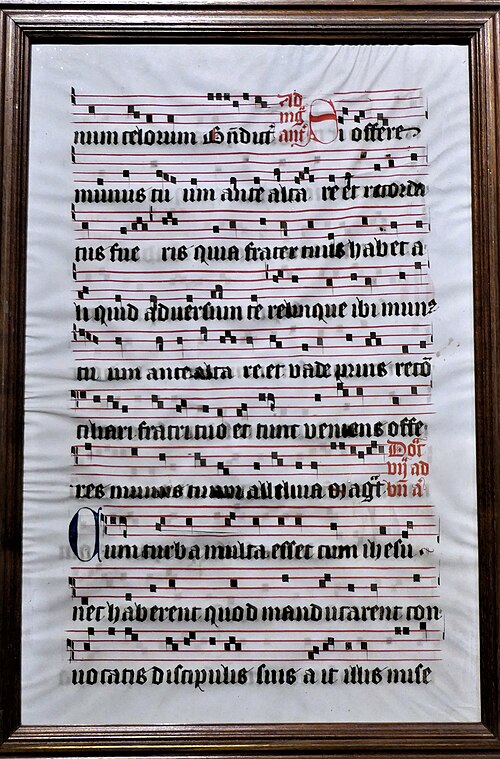 num celorum Bn̄dict̄ Ad mḡ ant̄ Si offere
munus tu um ante alta re et recorda
tus fue ris quia frater tuus habet a
li quid adversum te relinque ibi mun⁹
tu um ante alta re et vade prius recō
ciliari fratri tuo et tunc veniens offe
res munus tuum alleluia magt̄ Do⁊ vij ad vn̄ a
Cum turba multa esset cum ihesu
nec haberent quod manducarent con
uocatis discipulis suis a it illis mise